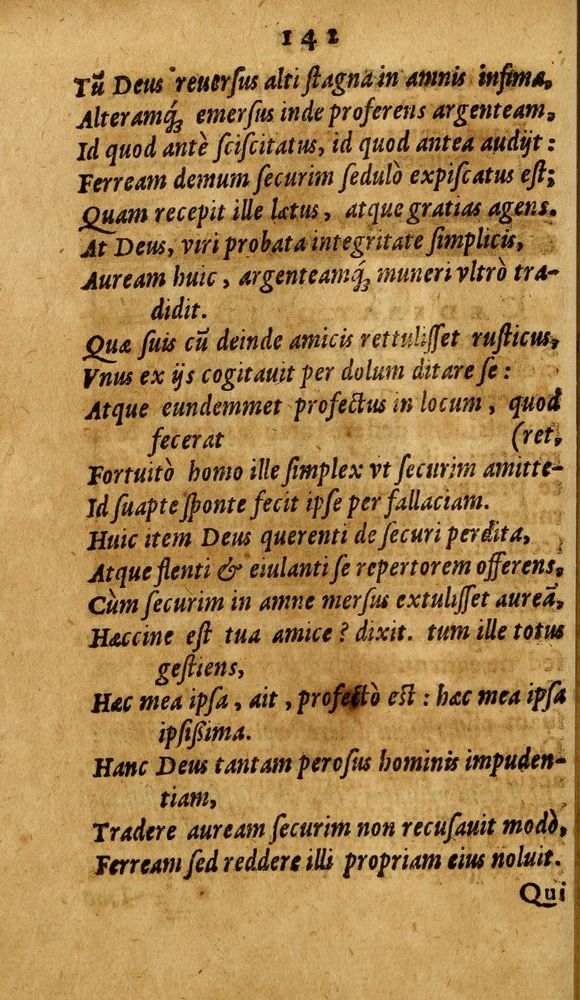 142
Tũ Deus reuerſus alti ſtagna in amnis infima,
Alteramq́ꝫ emerſus inde proferens argenteam,
Id quod antè ſciſcitatus, id quod antea audijt:
Ferream demum ſecurim ſedulò expiſcatus eſt;
Quam recepit ille lætus, atque gratias agens.
At Deus, viri probata integritate ſimplicis,
Auream huic, argenteamq́ꝫ muneri vltrò tra-
didit.
Quæ ſuis cũ deinde amicis rettuliſſet ruſticus,
Vnus ex ijs cogitauit per dolum ditare ſe:
Atque eundemmet profectus in locum, quod
fecerat (ret,
Fortuitò homo ille ſimplex vt ſecurim amitte-
Id ſuapte ſponte fecit ipſe per fallaciam.
Huic item Deus querenti de ſecuri perdita,
Atque flenti & eiulanti ſe repertorem offerens,
Cùm ſecurim in amne merſus extuliſſet aureã,
Hæccine eſt tua amice? dixit. tum ille totus
geſtiens,
Hæc mea ipſa, ait, profectò eſt: hæc mea ipſa
ipſißima.
Hanc Deus tantam peroſus hominis impuden-
tiam,
Tradere auream ſecurim non recuſauit modò,
Ferream ſed reddere illi propriam eius noluit.
Qui